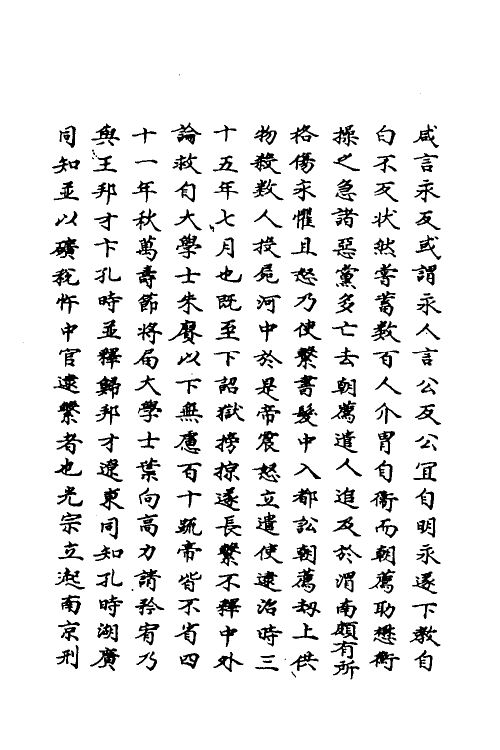 咸言永反或謂永人言公反公宜自明永遂下教自
白不反状然嘗蓄数百人介胄自衞而朝薦助懋衡
操之急諸惡黨多亡去朝薦遣人追及於渭南頗有所
格傷永懼且怒乃使繫書髮中入都訟朝薦刼上供
物殺数人投屍河中於是帝震怒立遣使逮治時三
十五年七月也既至下詔獄搒掠遂長繫不釋中外
論救自大學士朱賡以下無慮百十疏帝皆不省四
十一年秋萬壽節將屆大學士葉向高力請矜宥乃
與王邦才卞孔時並釋歸邦才遼東同知孔時湖廣
同知並以礦稅忤中官逮繫者也光宗立起南京刑